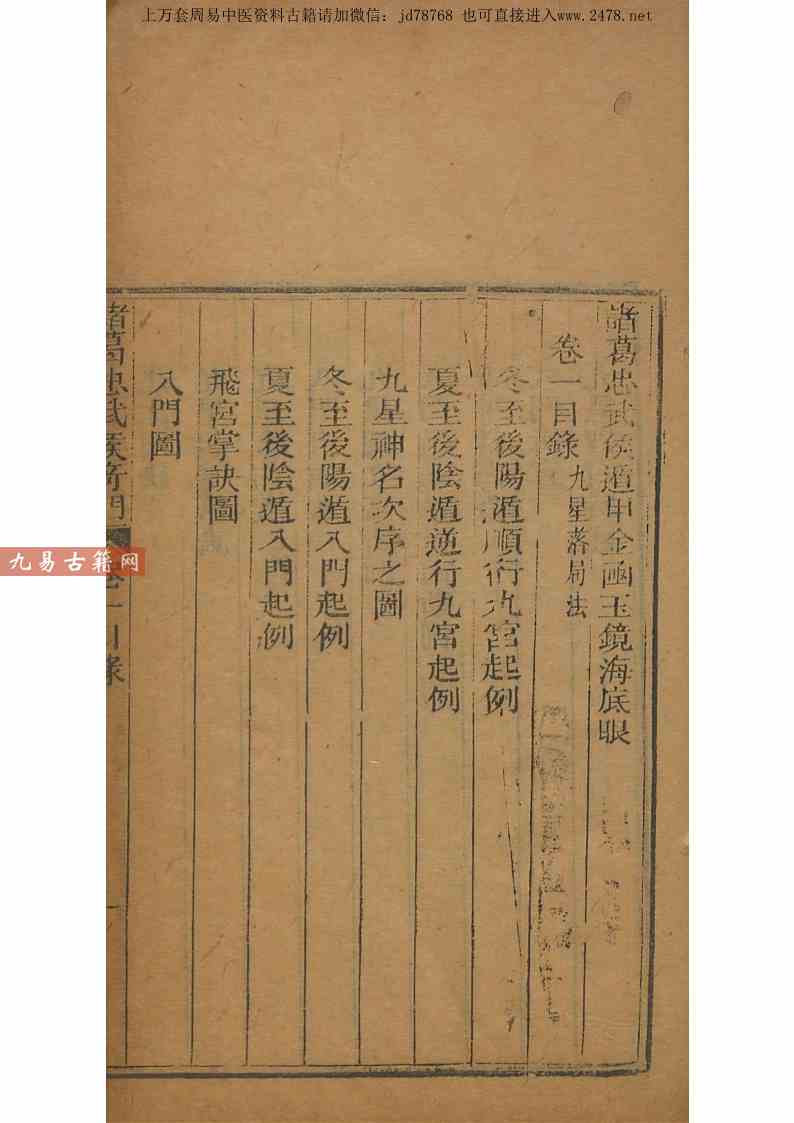 上万套周易中医资料古籍请加微信：jd78768 也可直接进入www.2478.net
諸葛忠武侯遁甲金函玉鏡海底眼
卷一目錄 九星落局法
冬至後陽遁順行九宮起例
夏至後陰遁逆行九宮起例
九星神名次序之圖
冬至後陽遁八門起例
夏至後陰遁八門起例
飛宮掌訣圖
八門圖
諸葛忠武侯奇門 卷一目錄 一
九易古籍网